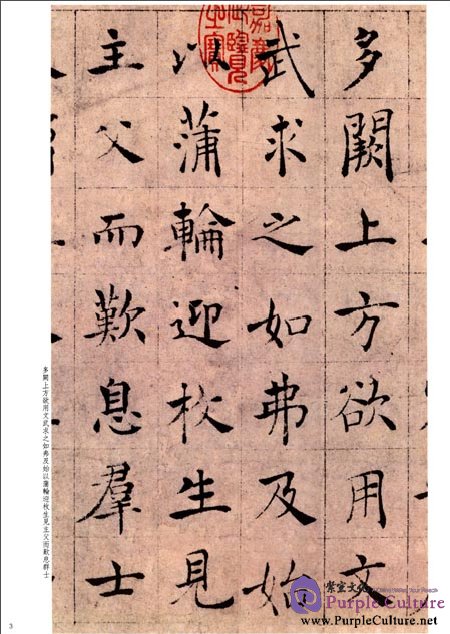 多闕上方欲用文
武求之如弗及始
以蒲輪迎枚生見
主父而歎息羣士
嘉慶
御覽
之寶
多闕上方欲用文武求之如弗及始以蒲輪迎枚生見主父而歎息群士
3
Purple Culture
www.PurpleCulture.net